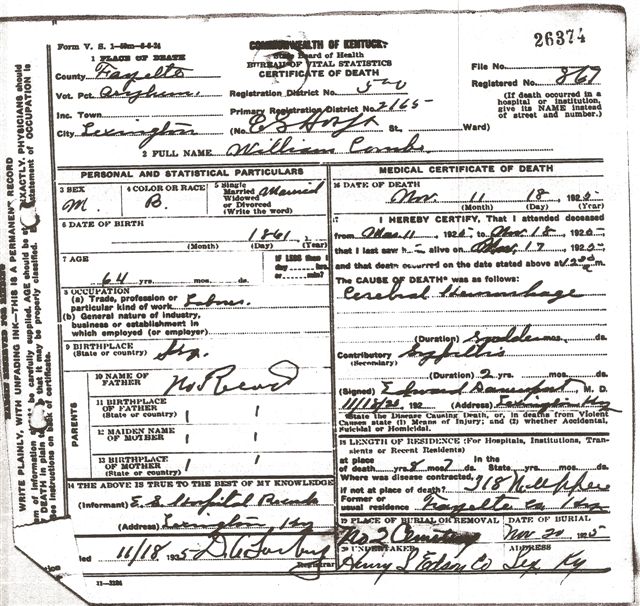 26374
Form V. S. 1—50m—5-6-24
COMMONWEALTH OF KENTUCKY
State Board of Health
BUREAU OF VITAL STATISTICS
CERTIFICATE OF DEATH
1 PLACE OF DEATH
County Fayette
Vot. Pct. Asylum
Inc. Town
City Lexington
Registration District No. 540
Primary Registration District No. 2165
(No. E S Hosp St. Ward)
File No.
Registered No. 867
(If death occurred in a hospital or institution, give its NAME instead of street and number.)
2 FULL NAME William Combs
PERSONAL AND STATISTICAL PARTICULARS
3 SEX M.
4 COLOR OR RACE B.
5 Single Married Widowed or Divorced (Write the word) Married
6 DATE OF BIRTH 1861
(Month) (Day) (Year)
7 AGE 64 yrs. mos. ds.
IF LESS than 1 day hrs. or min.
8 OCCUPATION
(a) Trade, profession or particular kind of work Labor
(b) General nature of industry, business or establishment in which employed (or employer)
9 BIRTHPLACE
(State or country)
10 NAME OF FATHER No Record
11 BIRTHPLACE OF FATHER
(State or country)
12 MAIDEN NAME OF MOTHER
13 BIRTHPLACE OF MOTHER
(State or country)
PARENTS
14 THE ABOVE IS TRUE TO THE BEST OF MY KNOWLEDGE
(Informant) E. S. Hospital Records
(Address) Lexington Ky
11/18 1925
Registrar
11-2184
MEDICAL CERTIFICATE OF DEATH
16 DATE OF DEATH
Nov. 11 18, 1925
(Month) (Day) (Year)
17 I HEREBY CERTIFY, That I attended deceased
from Mar. 11 1925 to Nov. 18 1925
that I last saw h alive on Nov. 17 1925
and that death occurred on the date stated above at
The CAUSE OF DEATH* was as follows:
Cerebral Hemorrhage
(Duration) Sudden yrs. mos. ds.
Contributory Syphillis
(Secondary)
(Duration) 2 yrs. mos. ds.
(Signed) Edward Davenport, M. D.
11/18/25, 192 (Address) Lexington Ky
*State the Disease Causing Death, or, in deaths from Violent Causes state (1) Means of Injury; and (2) whether Accidental, Suicidal or Homicidal.
18 LENGTH OF RESIDENCE (For Hospitals, Institutions, Transients or Recent Residents)
at place of death yrs. 8 mos. 7 ds. In the State yrs. mos. ds.
Where was disease contracted, if not at place of death? 318 N. Upper
Former or usual residence Fayette Co Ky
19 PLACE OF BURIAL OR REMOVAL No 2 Cemetery
DATE OF BURIAL Nov 20 1925
20 UNDERTAKER Henry S Edson Co
ADDRESS Lex Ky
WRITE PLAINLY, WITH UNFADING INK—THIS IS A PERMANENT RECORD